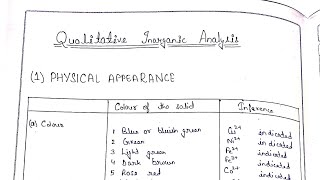 Qualitative Inorganic Analysis
(1) PHYSICAL APPEARANCE
Colour of the solid Inference
(a) Colour 1 Blue or bluish green Cu2+ indicated
2 Green Ni2+ indicated
3 Light green Fe2+ indicated
4 Dark brown Fe3+ indicated
5 Rose red Co2+ indicated